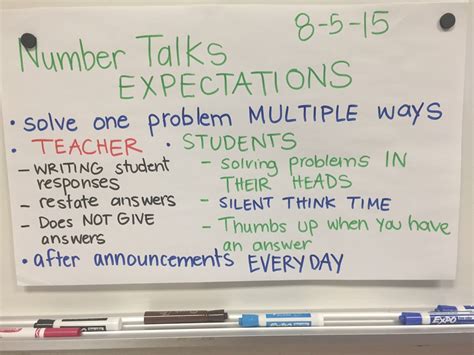 8-5-15
Number Talks
EXPECTATIONS
• solve one problem MULTIPLE ways
• TEACHER
- WRITING student
responses
- restate answers
- Does NOT GIVE
answers
• STUDENTS
- solving problems IN
THEIR HEADS
- SILENT THINK TIME
- Thumbs up when you have
an answer
• after announcements EVERYDAY
EXPO